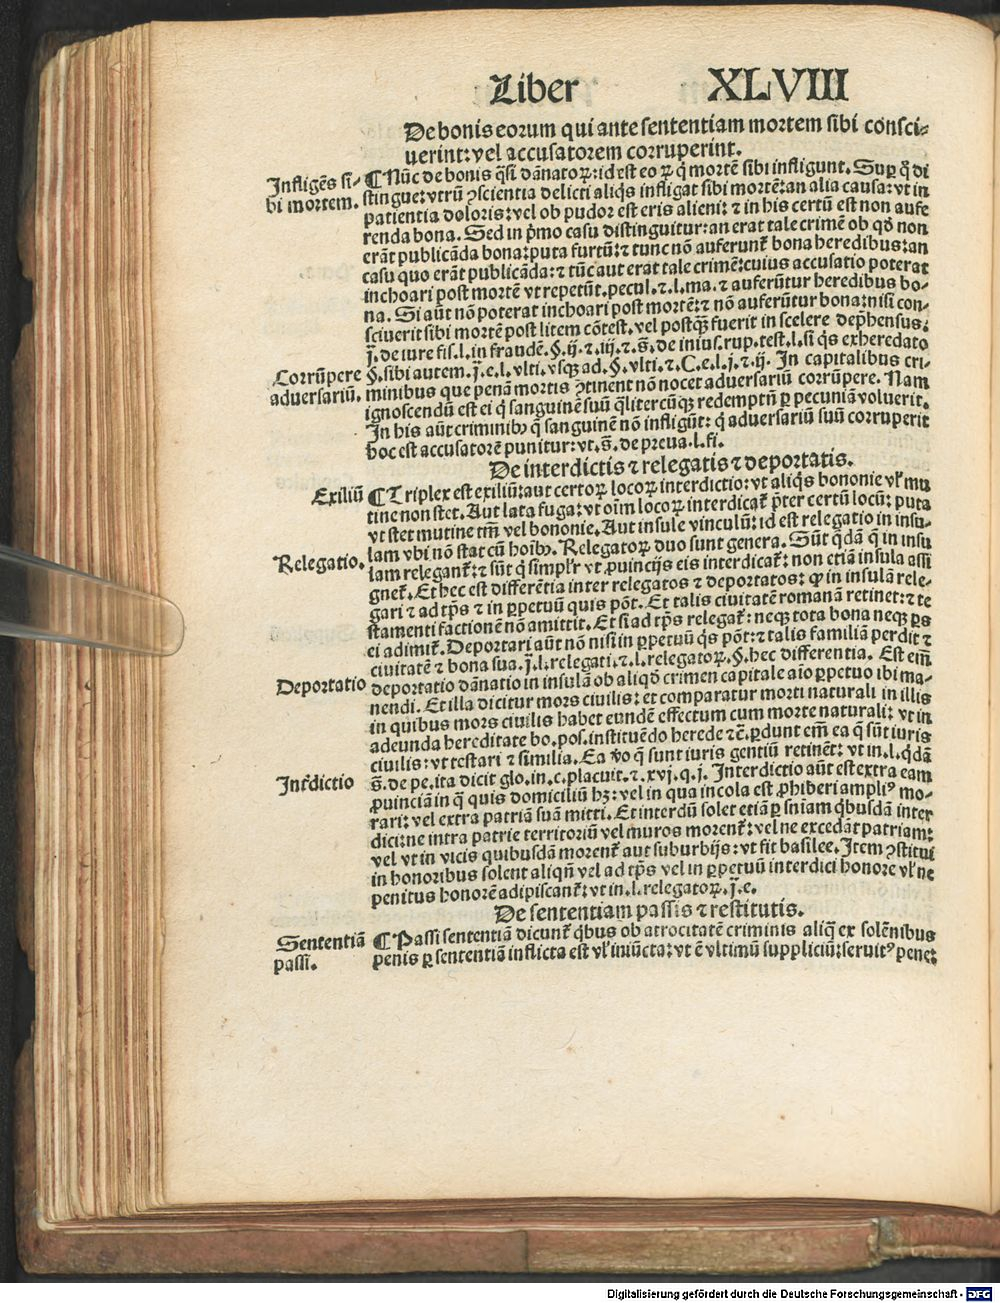 Liber XLVIII
De bonis eorum qui ante sententiam mortem sibi consci-
uerint: vel accusatorem corruperint.
Infligēs si-
bi mortem.
¶ Nūc de bonis q̄si dānatoꝝ: id est eoꝝ q̄ mortē sibi infligunt. Suꝑ qđ di
stingue: vtrū ꝯscientia delicti aliq̄s infligat sibi mortē: an alia causa: vt in
patientia doloris: vel ob pudorē eris alieni: ⁊ in his certū est non aufe
renda bona. Sed in p̄mo casu distinguitur: an erat tale crimē ob qđ non
erāt publicāda bona: puta furtū: ⁊ tunc nō auferunt̄ bona heredibus: an
casu quo erāt publicāda: ⁊ tūc aut erat tale crimē: cuius accusatio poterat
inchoari post mortē vt repetūt. pecul. ⁊. l. ma. ⁊ auferūtur heredibus bo-
na. Si aūt nō poterat inchoari post mortē: ⁊ nō auferūtur bona: nisi con-
sciuerit sibi mortē post litem cōtest. vel postq̄ꝫ fuerit in scelere dep̄hensus:
j̄. de iure fis. l. in fraudē. §. ij. ⁊. iij. ⁊. s̄. de inius. rup. test. l. si q̄s exheredato
§. sibi autem. j̄. e. l. vlti. vsqꝫ ad. §. vlti. ⁊. C. e. l. j. ⁊. ij. In capitalibus cri-
Corrūpere
aduersariū.
minibus que penā mortis ꝯtinent non nocet aduersariū corrūpere. Nam
ignoscendū est ei q̄ sanguinē suū q̄litercūqꝫ redemptū ꝑ pecuniā voluerit.
In his aūt criminibꝰ q̄ sanguinē nō infligūt: q̄ aduersariū suū corruperit
hoc est accusatorē punitur: vt. s̄. de preua. l. fi.
De interdictis ⁊ relegatis ⁊ deportatis.
Exiliū
¶ Triplex est exiliū: aut certoꝝ locoꝝ interdictio: vt aliq̄s bononie vł mu
tine non stet. Aut lata fuga: vt oīm locoꝝ interdicat̄ p̄ter certū locū: puta
vt stet mutine tm̄ vel bononie. Aut insule vinculū: id est relegatio in insu-
lam vbi nō stat cū hoībꝰ. Relegatoꝝ duo sunt genera. Sūt q̄dā q̄ in insu
Relegatio.
lam relegant̄: ⁊ sūt q̄ simplr̄ vt ꝓuincijs eis interdicat̄: non etiā insula assi
gnet̄. Et hec est differētia inter relegatos ⁊ deportatos: qꝛ in insulā rele-
gari ⁊ ad tp̄s ⁊ in ꝑpetuū quis pōt. Et talis ciuitatē romanā retinet: ⁊ te
stamenti factionē nō amittit. Et si ad tp̄s relegat̄: neqꝫ tota bona neqꝫ ꝑs
ei adimit̄. Deportari aūt nō nisi in ꝑpetuū q̄s pōt: ⁊ talis familiā perdit ⁊
ciuitatē ⁊ bona sua. j̄. l. relegati. ⁊. l. relegatoꝝ. §. hec differentia. Est em̄
Deportatio
deportatio dānatio in insulā ob aliqđ crimen capitale aīo ꝑpetuo ibi ma-
nendi. Et illa dicitur mors ciuilis: et comparatur morti naturali in illis
in quibus mors ciuilis habet eundē effectum cum morte naturali: vt in
adeunda hereditate bo. pos. instituēdo herede ⁊c̄. ꝑdunt em̄ ea q̄ sūt iuris
ciuilis: vt testari ⁊ similia. Ea v̄o q̄ sunt iuris gentiū retinēt: vt in. l. q̄dā
s̄. de pe. ita dicit glo. in. c. placuit. ⁊. xvj. q. j. Interdictio aūt est extra eam
Int̄dictio
ꝓuinciā in q̄ quis domiciliū hꝫ: vel in qua incola est ꝓhiberi ampliꝰ mo-
rari: vel extra patriā suā mitti. Et interdū solet etiā ꝑ sniam q̄busdā inter
dici: ne intra patrie territoriū vel muros morent̄: vel ne excedāt patriam:
vel vt in vicis quibusdā morent̄ aut suburbijs: vt fit basilee. Item ꝯstitui
in honoribus solent aliqñ vel ad tp̄s vel in ꝑpetuū interdici honore vł ne
penitus honorē adipiscant̄: vt in. l. relegatoꝝ. j̄. e.
De sententiam passis ⁊ restitutis.
Sententiā
passi.
¶ Passi sententiā dicunt̄ q̄bus ob atrocitatē criminis aliq̄ ex solēnibus
penis ꝑ sententiā inflicta est vł iniūcta: vt ē vltimū suppliciū: seruitꝰ pene:
Digitalisierung gefördert durch die Deutsche Forschungsgemeinschaft - DFG